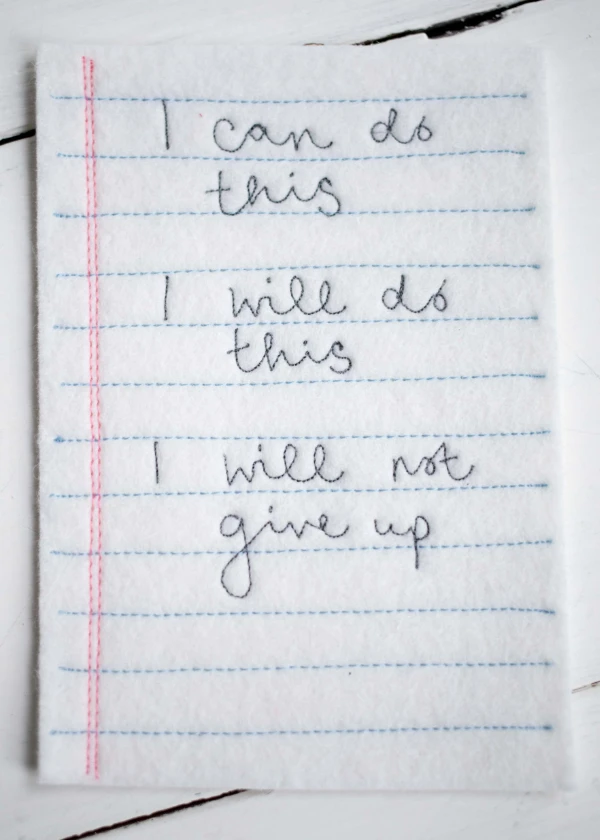 I can do
this
I will do
this
I will not
give up